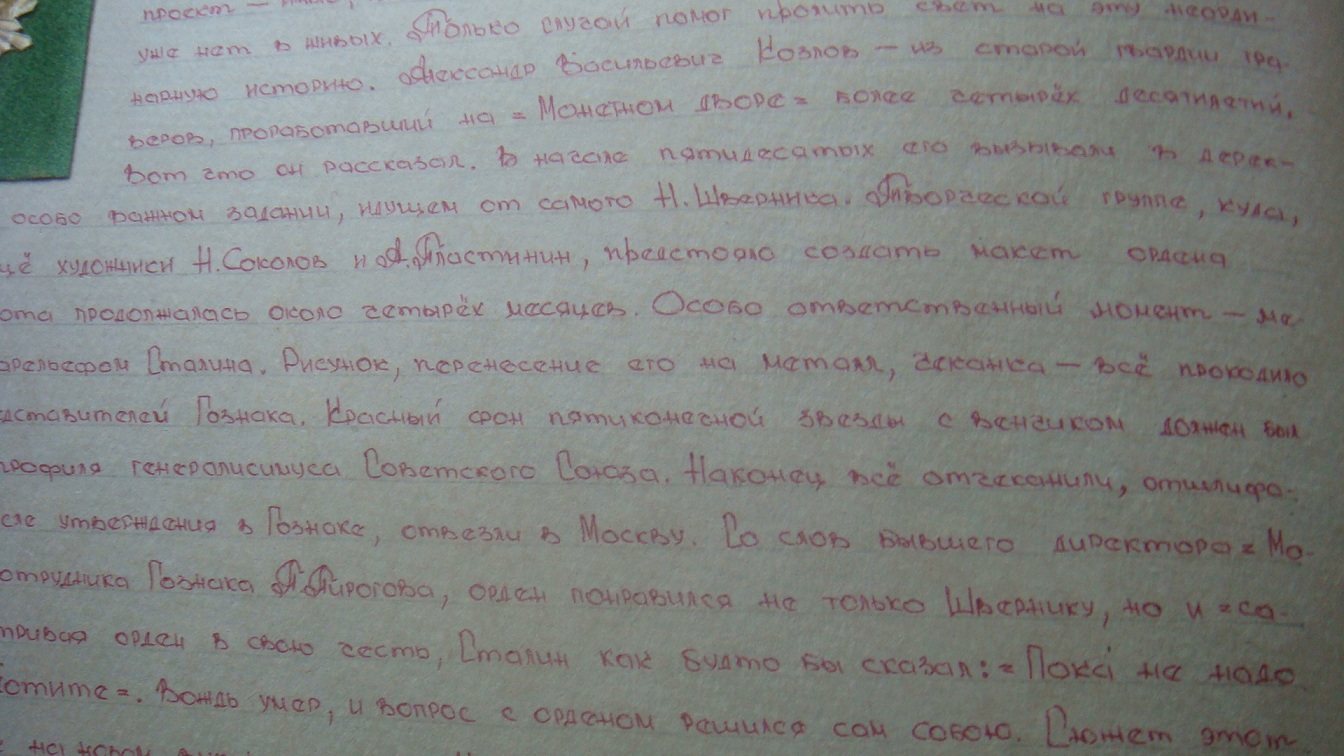 проект —
уже нет в живых. Только случай помог пролить свет на эту неорди-
нарную историю. Александр Васильевич Козлов — из старой гвардии гра-
веров, проработавший на = Монетном дворе = более четырёх десятилетий.
Вот что он рассказал. В начале пятидесятых его вызывали в дерек-
особо важном задании, идущем от самого Н. Шверника. Творческой группе, куда,
щё художники Н. Соколов и А. Пластинин, предстояло создать макет ордена
ота продолжалась около четырёх месяцев. Особо ответственный момент —
орельефом Сталина. Рисунок, перенесение его на металл, чеканка — всё проходило
дставителей Гознака. Красный фон пятиконечной звезды с венчиком должен был
профиля генералисимуса Советского Союза. Наконец всё отчеканили, отшлифо-
сле утверждения в Гознаке, отвезли в Москву. Со слов бывшего директора = Мо-
отрудника Гознака Пирогова, орден понравился не только Швернику, но и = са-
тривая орден в свою честь, Сталин как будто бы сказал: = Пока не надо
отите =. Вождь умер, и вопрос с орденом решился сам собою. Сюжет этот